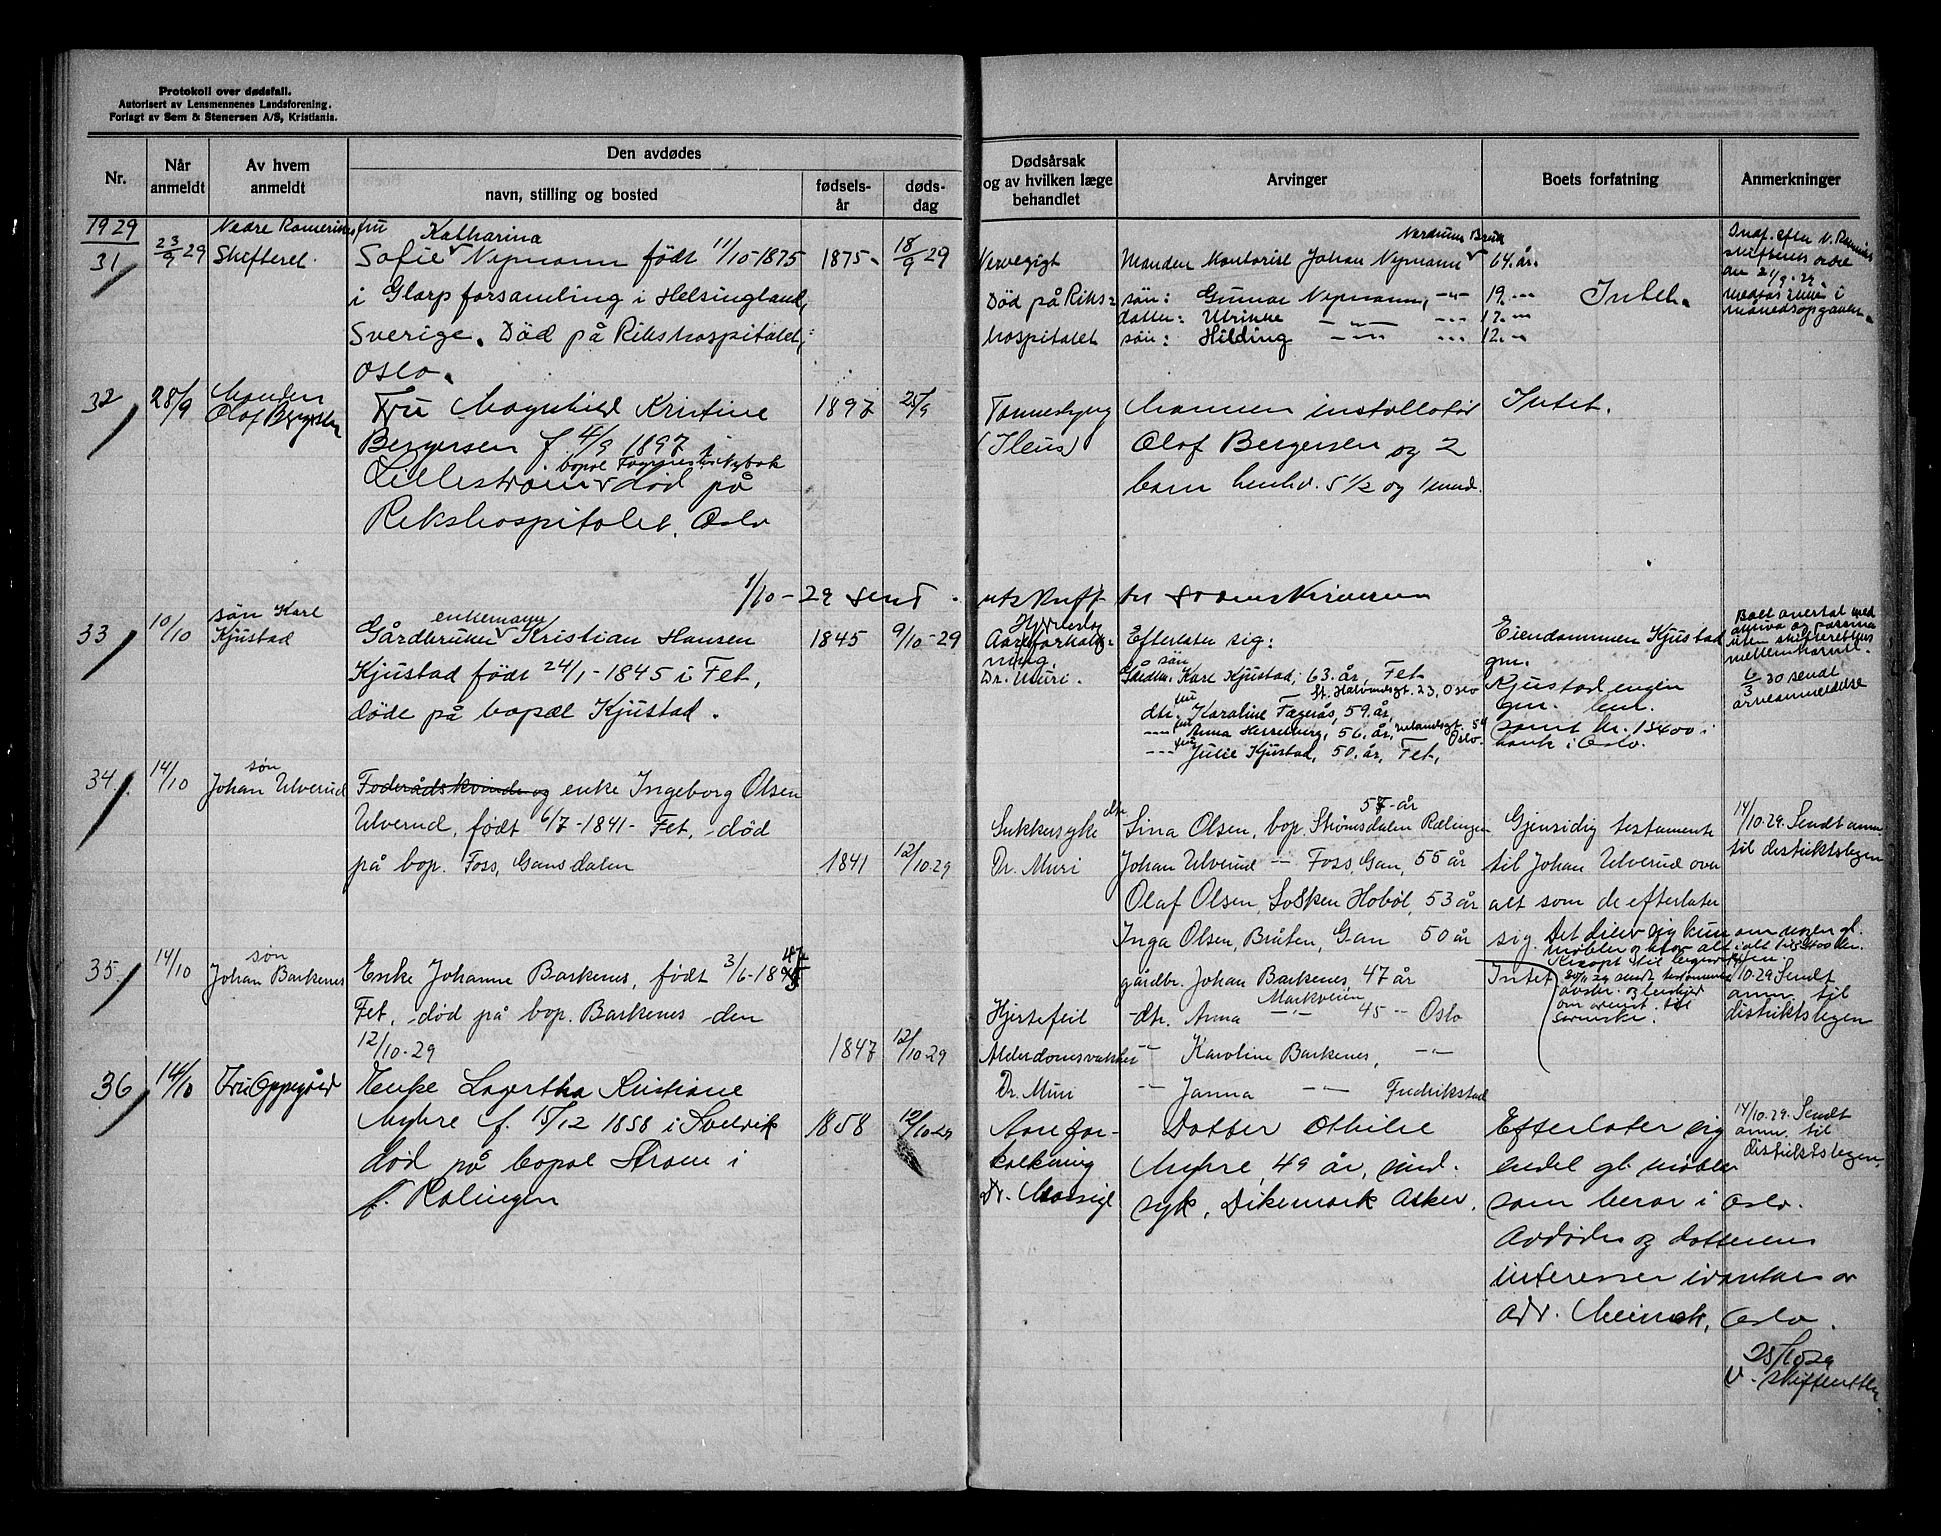 Protokoll over dødsfall.
Autorisert av Lensmennenes Landsforening.
Forlagt av Sem & Stenersen A/S, Kristiania.
Nr.
Når anmeldt
Av hvem anmeldt
Den avdødes
navn, stilling og bosted
fødsels-år
døds-dag
Dødsårsak og av hvilken læge behandlet
Arvinger
Boets forfatning
Anmerkninger
1929
31
23/9 29
Nedre Romerikes
Skifteret.
fru Katharina
Sofie Nymann født 11/10-1875
i Glarp forsamling i Helsingland,
Sverige. Død på Rikshospitalet,
Oslo.
1875
18/9 29
Død på Riks=
hospitalet
Nordrum Bruk
Manden Kontorist Johan Nymann 64 år.
søn: Gunnar Nymann, -"- 19 -"-
datter: Ulrikke -"- 17 -"-
søn: Hilding -"- 12 -"-
Intet.
32
28/9
Manden
Olaf Bergersen
Fru Magnhild Kristine
Bergersen f 4/9 1897 i
Lillestrøm død på
Rikshospitalet, Oslo
1897
25/9
(Ileus)
Mannen installatør
Olaf Bergersen og 2
barn henhv. 5 1/2 og 1 mnd.
Intet.
1/10-29 sendt utskrift til sorenskriveren
33
10/10
søn Karl
Kjustad
enkemann
Gårdbruker Kristian Hansen
Kjustad født 24/1-1845 i Fet,
døde på bopæl Kjustad.
1845
9/10-29
Aareforkalk=
ning.
Dr. Muri.
Efterlater sig:
søn
Gårdbr. Karl Kjustad, 63 år, Fet
fru St. Halvardsgt. 23, Oslo
dtr. Karaline Fagerås, 59 år,
fru Anna Hesselberg, 56 år, 54 Oslo.
fru Julie Kjustad, 50 år, Fet,
Eiendommen Kjustad
gm.
Kjustadengen
gm. bnr.
samt kr. 13400 i
bank i Oslo.
Boet overtat med
aktiva og passiva
uten skifterettens
mellemkomst.
6/3 30 sendt
arveanmeldelse
34
14/10
søn
Johan Ulverud
Foderådskvinde og enke Ingeborg Olsen
Ulverud, født 6/7-1841- Fet, død
på bop. Foss, Gansdalen
1841
12/10-29
Sukkersyke
Dr. Muri
57 år
dtr. Lina Olsen, bop. Strømsdalen Rælingen
Johan Ulverud -"- Foss, Gan, 55 år
Olaf Olsen, Hobøl, 53 år
Inga Olsen, Bråten, Gan 50 år
Gjensidig testamente
til Johan Ulverud over
alt som de efterlater
sig. Det dreier sig kun om nogen gl.
møbler og klær alt i alt
14/10.29. Sendt anm.
til distriktslegen
35
14/10
søn
Johan Barkenes
Enke Johanne Barkenes, født 3/6-1847
Fet, død på bop. Barkenes den
12/10-29
1847
12/10-29
Hjertefeil
Alderdomssvakhet
Dr. Muri
gårdbr. Johan Barkenes, 47 år
Markveien
dtr. Anna -"- 45 -"- Oslo
-"- Karoline Barkenes, -"-
-"- Janna -"- Fredrikstad
Intet
14/10.29 Sendt
anm. til
distriktslegen
36
14/10
Fru Oppegård
Enke Lagertha Kristiane
Myhre f. 15/12 1858 i Svelvik
død på bopel Strøm i
Rælingen
1858
12/10-29
Aarefor-
kalkning
Datter Othilie
Myhre, 49 år, sind-
syk, Dikemark Asker.
Efterlater sig
endel gl. møbler
som beror i Oslo.
Avdødes og datterens
interesser ivaretas av
adv. Oslo.
14/10.29. Sendt
anm. til
distriktslegen.
25/10 29
skifteretten.